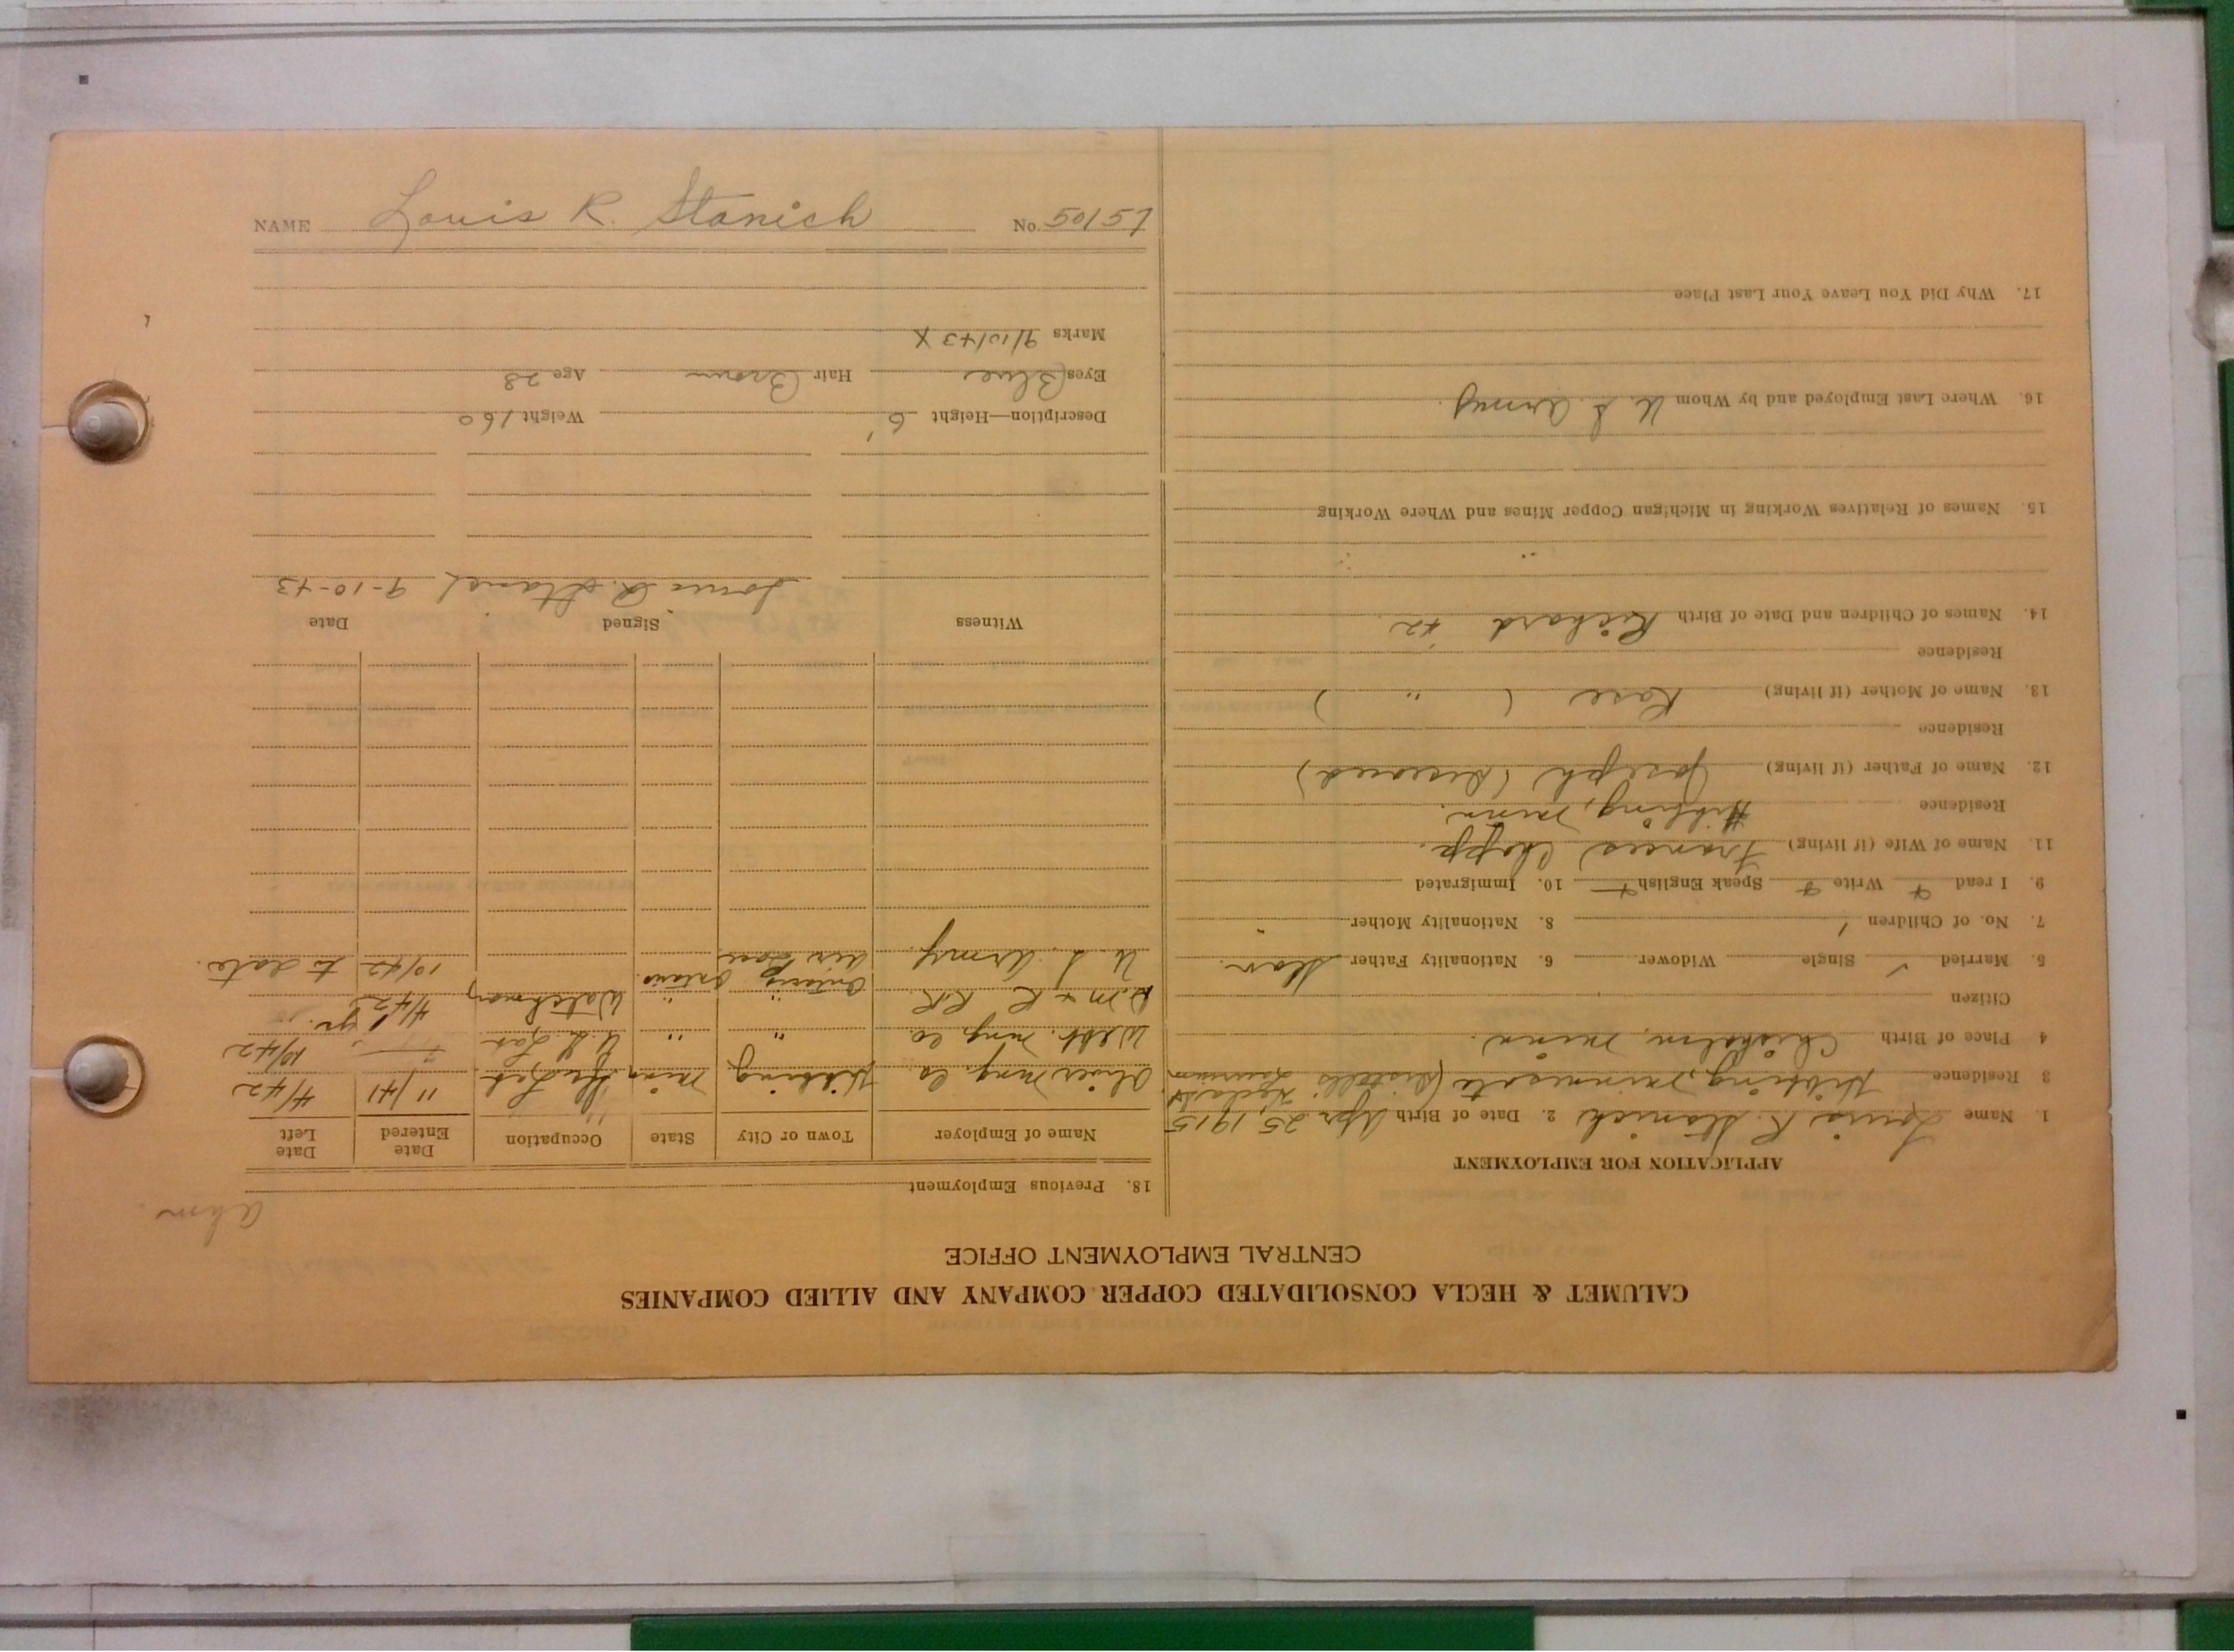 CALUMET & HECLA CONSOLIDATED COPPER COMPANY AND ALLIED COMPANIES
CENTRAL EMPLOYMENT OFFICE
APPLICATION FOR EMPLOYMENT
1. Name Louis R. Stanich 2. Date of Birth Apr 25, 1915
3 Residence Hibbing, Minnesota (
4 Place of Birth Chisholm, Minn.
Citizen
5. Married ✓ Single Widower 6. Nationality Father Slav.
7. No. of Children 1 8. Nationality Mother "
9. I read + Write + Speak English + 10. Immigrated
11. Name of Wife (if living) Frances Chopp.
Residence Hibbing, Minn.
12. Name of Father (if living) Joseph (Deceased)
Residence
13. Name of Mother (if living) Rose ( " )
Residence
14. Names of Children and Date of Birth Richard 42.
15. Names of Relatives Working in Michigan Copper Mines and Where Working
16. Where Last Employed and by Whom U. S. Army.
17. Why Did You Leave Your Last Place
18. Previous Employment
Name of Employer Town or City State Occupation Date Entered Date Left
Oliver Mng. Co. Hibbing Minn 11/41 4/42
Mng. Co. " " 10/42
R.R. " Watchman 4/42 1 yr.
U. S. Army. 10/42 to date.
Witness Signed Date
Louis R. Stanich 9-10-43
Description—Height 6' Weight 160
Eyes Blue Hair Brown Age 28
Marks 9/10/43 X
NAME Louis R. Stanich No. 50157